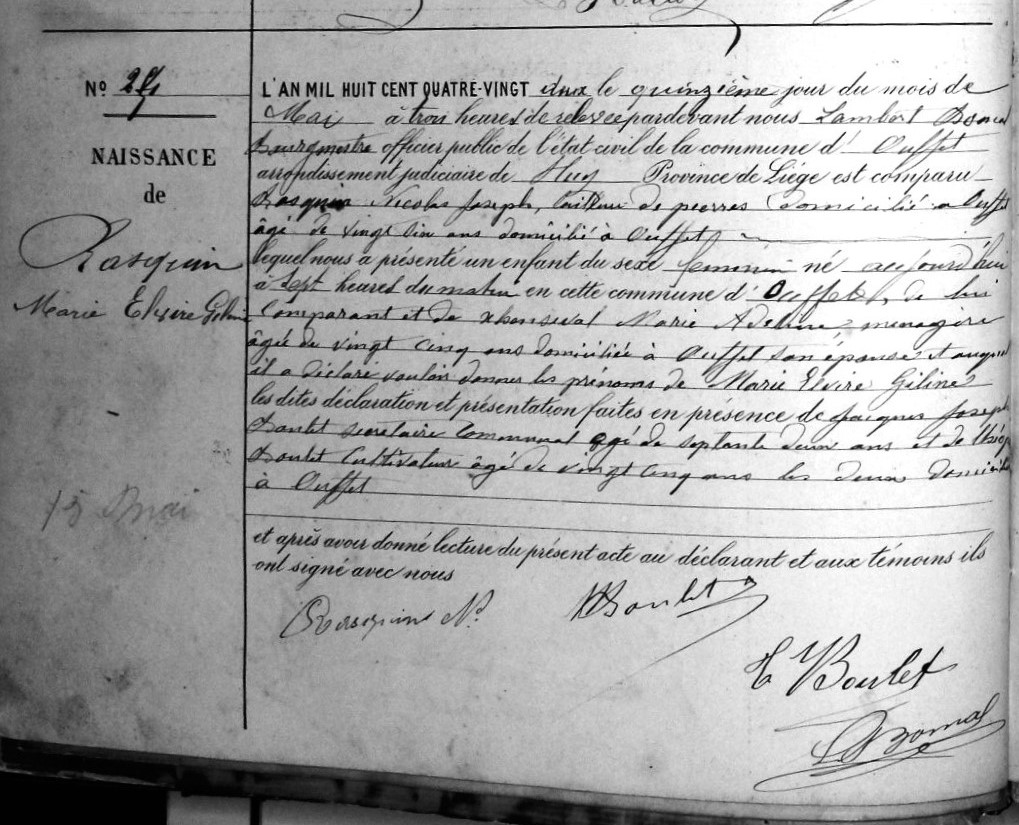 Nº 24
NAISSANCE
de
Rasquin
Marie Elvire
15 mai
L'AN MIL HUIT CENT QUATRE-VINGT deux le quinzième jour du mois de
Mai à trois heures de relevée pardevant nous Lambert Bomal
Bourgmestre officier public de l'état civil de la commune d' Ouffet
arrondissement judiciaire de Huy Province de Liége est comparu
Rasquin Nicolas Joseph, tailleur de pierres domicilié a Ouffet
âgé de vingt six ans domicilié à Ouffet
lequel nous a présenté un enfant du sexe feminin né aujourd'hui
à sept heures du matin en cette commune d' Ouffet, de lui
comparant et de Marie Adeline, menagère
âgée de vingt cinq ans domiciliée à Ouffet son épouse et auquel
il a déclaré vouloir donner les prénoms de Marie Elvire
les dites déclaration et présentation faites en présence de Jacques Joseph
Boulet secretaire communal agé de septante deux ans et de
Boulet cultivateur âgé de vingt cinq ans les deux
à Ouffet
et après avoir donné lecture du présent acte au déclarant et aux témoins ils
ont signé avec nous
Rasquin N. Boulet
Boulet
Bomal